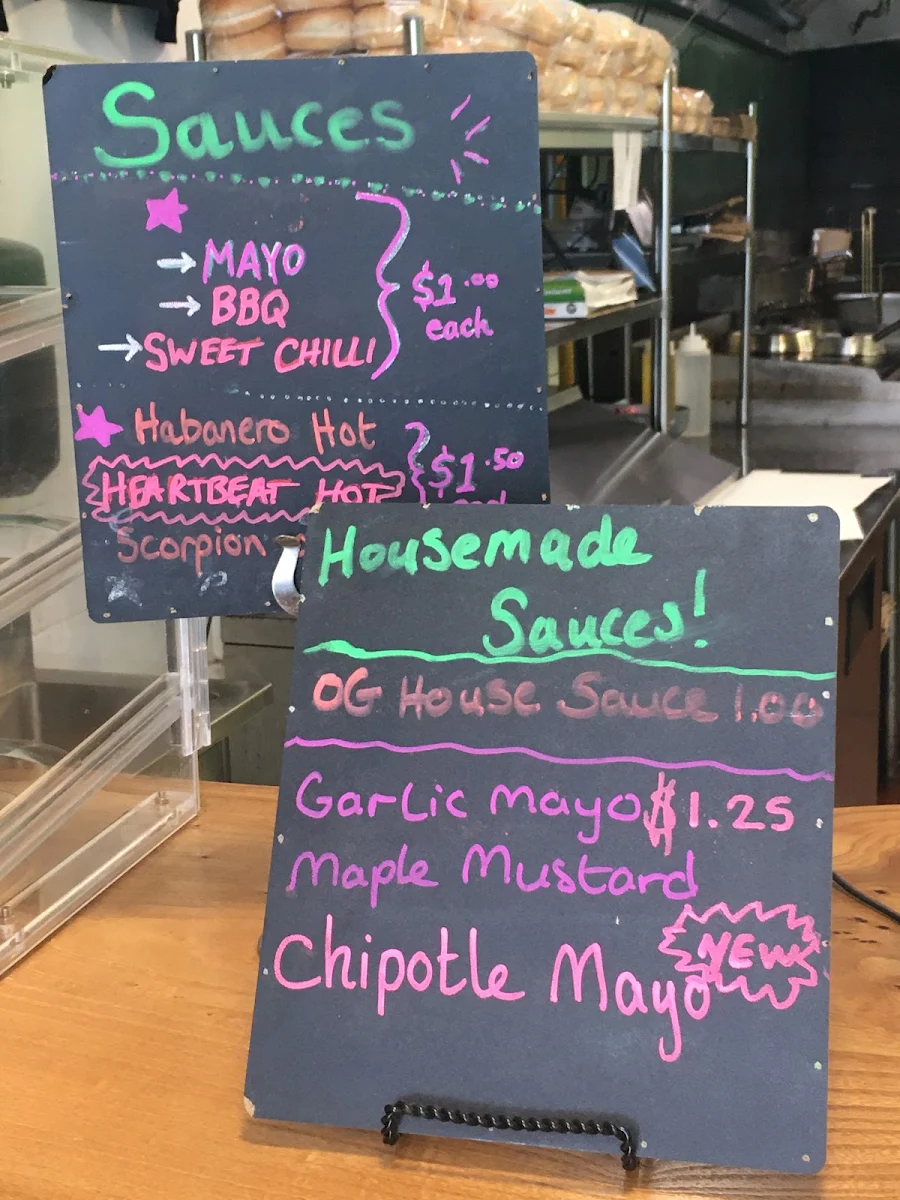 Sauces
→ MAYO
→ BBQ
→ SWEET CHILLI
$1.00
each
Habanero Hot
HEARTBEAT HOT
Scorpion
$1.50
Housemade
Sauces!
OG House Sauce 1.00
Garlic mayo $1.25
Maple Mustard
Chipotle Mayo
NEW